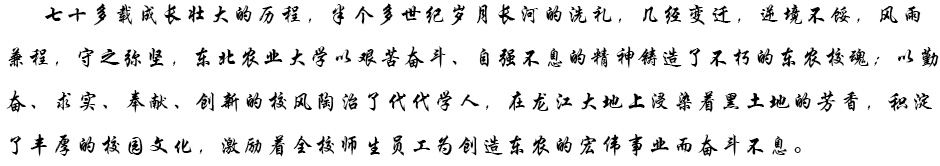 七十多载成长壮大的历程，半个多世纪岁月长河的洗礼，几经变迁，逆境不馁，风雨
兼程，守之弥坚，东北农业大学以艰苦奋斗、自强不息的精神铸造了不朽的东农校魂；以勤
奋、求实、奉献、创新的校风陶冶了代代学人，在龙江大地上浸染着黑土地的芳香，积淀
了丰厚的校园文化，激励着全校师生员工为创造东农的宏伟事业而奋斗不息。